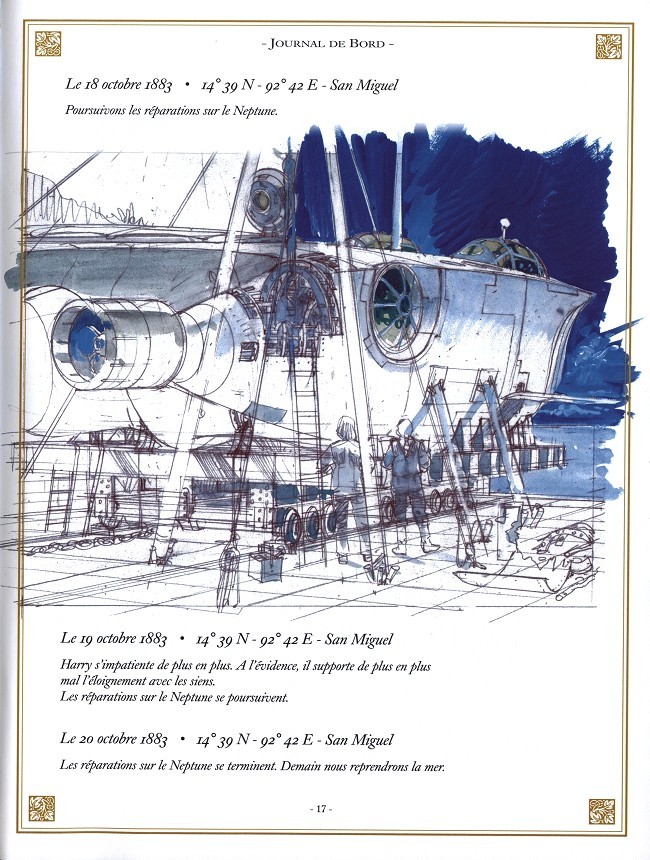 - Journal de Bord -
Le 18 octobre 1883 • 14° 39 N - 92° 42 E - San Miguel
Poursuivons les réparations sur le Neptune.
Le 19 octobre 1883 • 14° 39 N - 92° 42 E - San Miguel
Harry s'impatiente de plus en plus. A l'évidence, il supporte de plus en plus
mal l'éloignement avec les siens.
Les réparations sur le Neptune se poursuivent.
Le 20 octobre 1883 • 14° 39 N - 92° 42 E - San Miguel
Les réparations sur le Neptune se terminent. Demain nous reprendrons la mer.
- 17 -